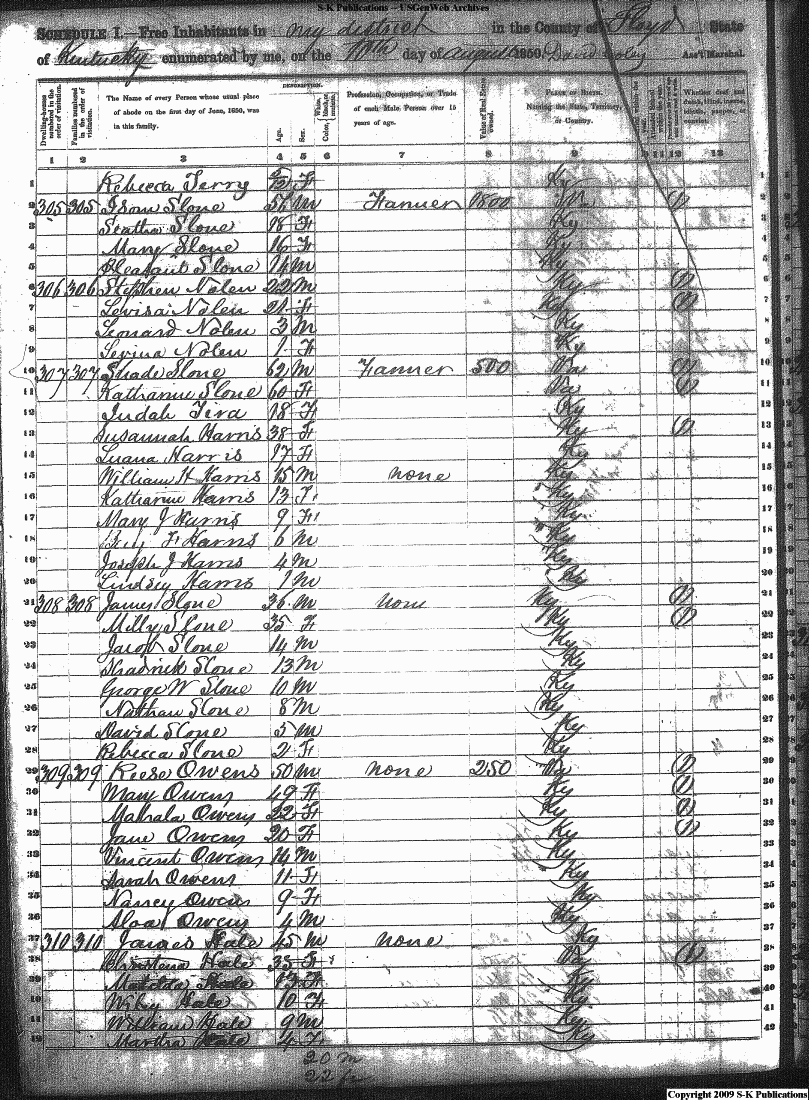 S-K Publications -- USGenWeb Archives
SCHEDULE I.—Free Inhabitants in my district in the County of Floyd State
of Kentucky enumerated by me, on the 10th day of August 1850. David Ass't Marshal.
Dwelling-houses numbered in the order of visitation.
Families numbered in the order of visitation.
The Name of every Person whose usual place of abode on the first day of June, 1850, was in this family.
DESCRIPTION.
Age.
Sex.
Color, White, black, or mulatto.
Profession, Occupation, or Trade of each Male Person over 15 years of age.
Value of Real Estate owned.
PLACE OF BIRTH. Naming the State, Territory, or Country.
Whether deaf and dumb, blind, insane, idiotic, pauper, or convict.
1 2 3 4 5 6 7 8 9 11 12 13
1 Rebecca Terry 5/12 F Ky
2 305 305 Isom Slone 57 M Farmer 1800 1
3 Slone 18 F Ky
4 Mary Slone 16 F Ky
5 Pleasant Slone 14 M Ky
6 306 306 Stephen Nolen 22 M Ky 1
7 Levisa Nolen 21 F Ky 1
8 Leonard Nolen 3 M Ky
9 Levina Nolen 1 F Ky
10 307 307 Shade Slone 62 M Farmer 500 Va 1
11 Katharine Slone 60 F Va 1
12 Judah 18 F Ky
13 Susannah Harris 38 F Ky 1
14 Luana Harris 17 F Ky
15 William H Harris 15 M none Ky
16 Katharine Harris 13 F Ky
17 Mary J Harris 9 F Ky
18 F Harris 6 M Ky
19 Joseph J Harris 4 M Ky
20 Lindsey Harris 1 M Ky
21 308 308 James Slone 36 M none Ky 1
22 Milly Slone 35 F Ky 1
23 Jacob Slone 14 M Ky
24 Slone 13 M Ky
25 George W Slone 10 M Ky
26 Nathan Slone 8 M Ky
27 David Slone 5 M Ky
28 Rebecca Slone 2 F Ky
29 309 309 Reese Owens 50 M none 250 Va 1
30 Mary Owens 49 F Ky 1
31 Mahala Owens 22 F Ky 1
32 Jane Owens 20 F Ky 1
33 Vincent Owens 14 M Ky
34 Sarah Owens 11 F Ky
35 Nancy Owens 9 F Ky
36 Owens 4 M Ky
37 310 310 James Hale 45 M none Ky
38 Christena Hale 33 F Va 1
39 Matilda Hale 13 F Ky
40 Wiby Hale 10 F Ky
41 William Hale 9 M Ky
42 Martha Hale 4 F Ky
20 m
22 fe
Copyright 2009 S-K Publications